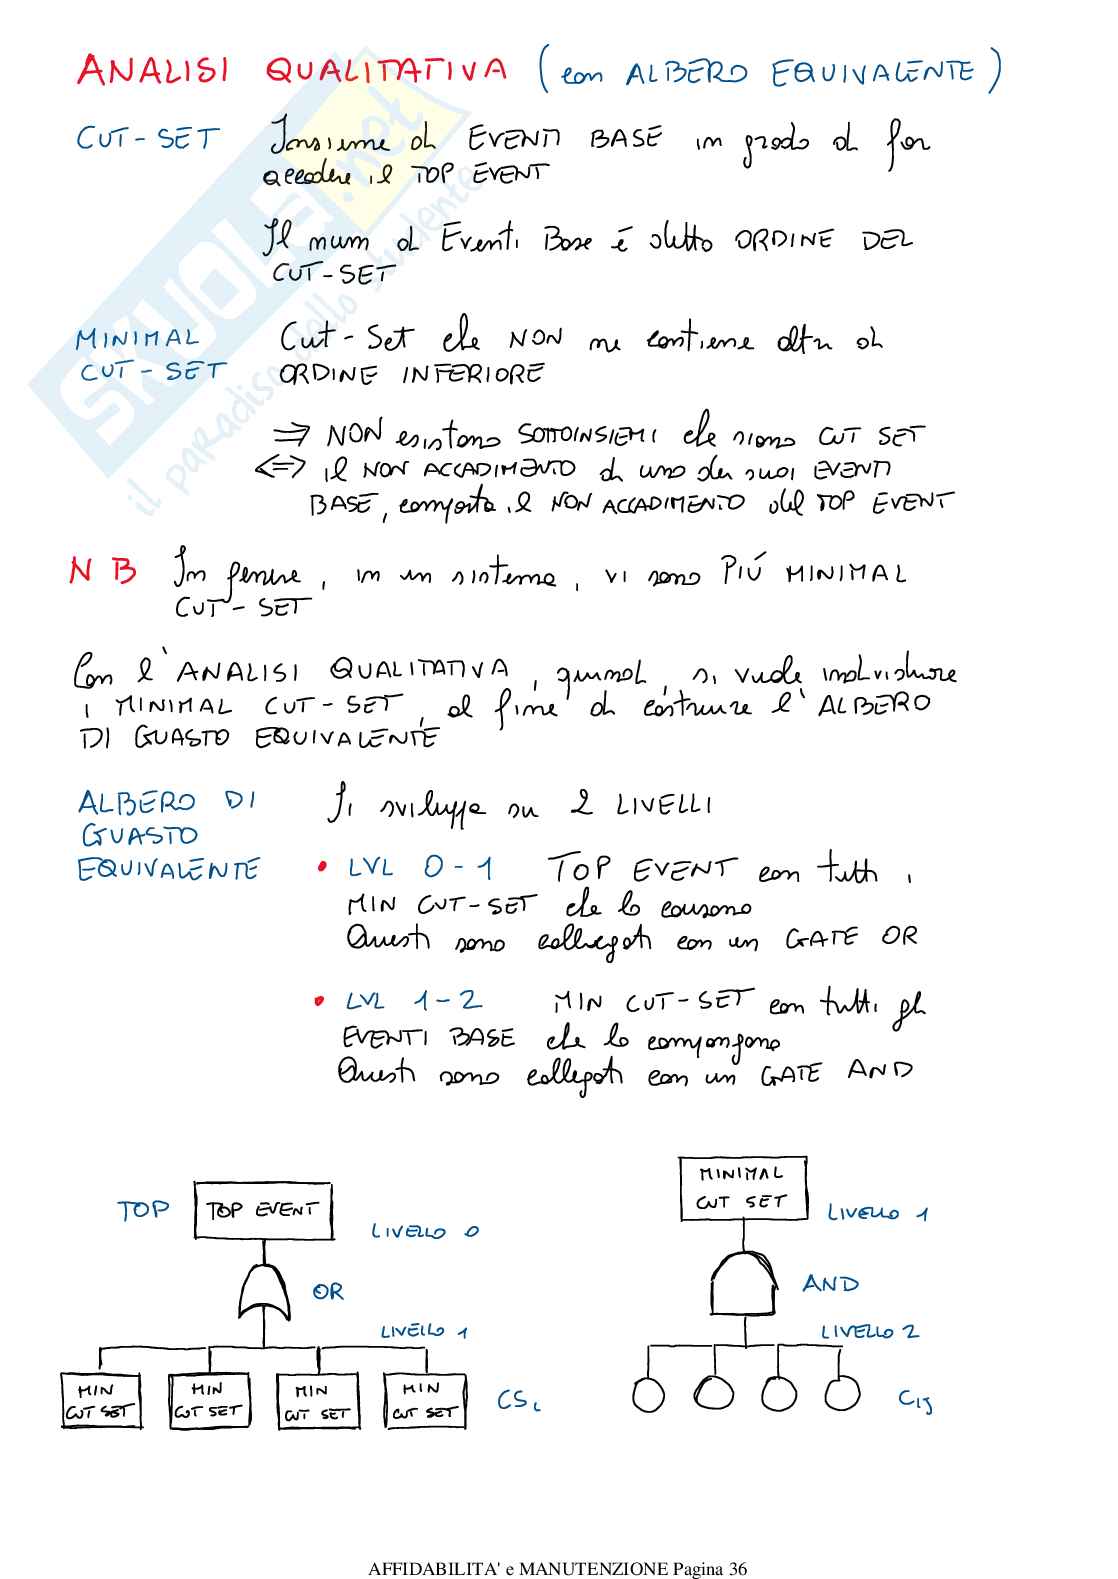 ANALISI QUALITATIVA (con ALBERO EQUIVALENTE)
CUT-SET Insieme di EVENTI BASE in grado di far
accadere il TOP EVENT
Il num di Eventi Base é detto ORDINE DEL
CUT-SET
MINIMAL Cut-Set che NON ne contiene altri di
CUT-SET ORDINE INFERIORE
⇒ NON esistono SOTTOINSIEMI che siano CUT SET
⇔ il NON ACCADIMENTO di uno dei suoi EVENTI
BASE, comporta il NON ACCADIMENTO del TOP EVENT
NB In genere, in un sistema, vi sono PIÚ MINIMAL
CUT-SET
Con l'ANALISI QUALITATIVA, quindi, si vuole individuare
i MINIMAL CUT-SET, al fine di costruire l'ALBERO
DI GUASTO EQUIVALENTE
ALBERO DI Si sviluppa su 2 LIVELLI
GUASTO
EQUIVALENTE • LVL 0-1 TOP EVENT con tutti i
MIN CUT-SET che lo causano
Questi sono collegati con un GATE OR
• LVL 1-2 MIN CUT-SET con tutti gli
EVENTI BASE che lo compongono
Questi sono collegati con un GATE AND
TOP TOP EVENT
LIVELLO 0
OR
LIVELLO 1
MIN CUT SET
MIN CUT SET
MIN CUT SET
MIN CUT SET
CSi
MINIMAL
CUT SET
LIVELLO 1
AND
LIVELLO 2
Cij
SKUOLA.net
il paradiso dello studente
AFFIDABILITA' e MANUTENZIONE Pagina 36